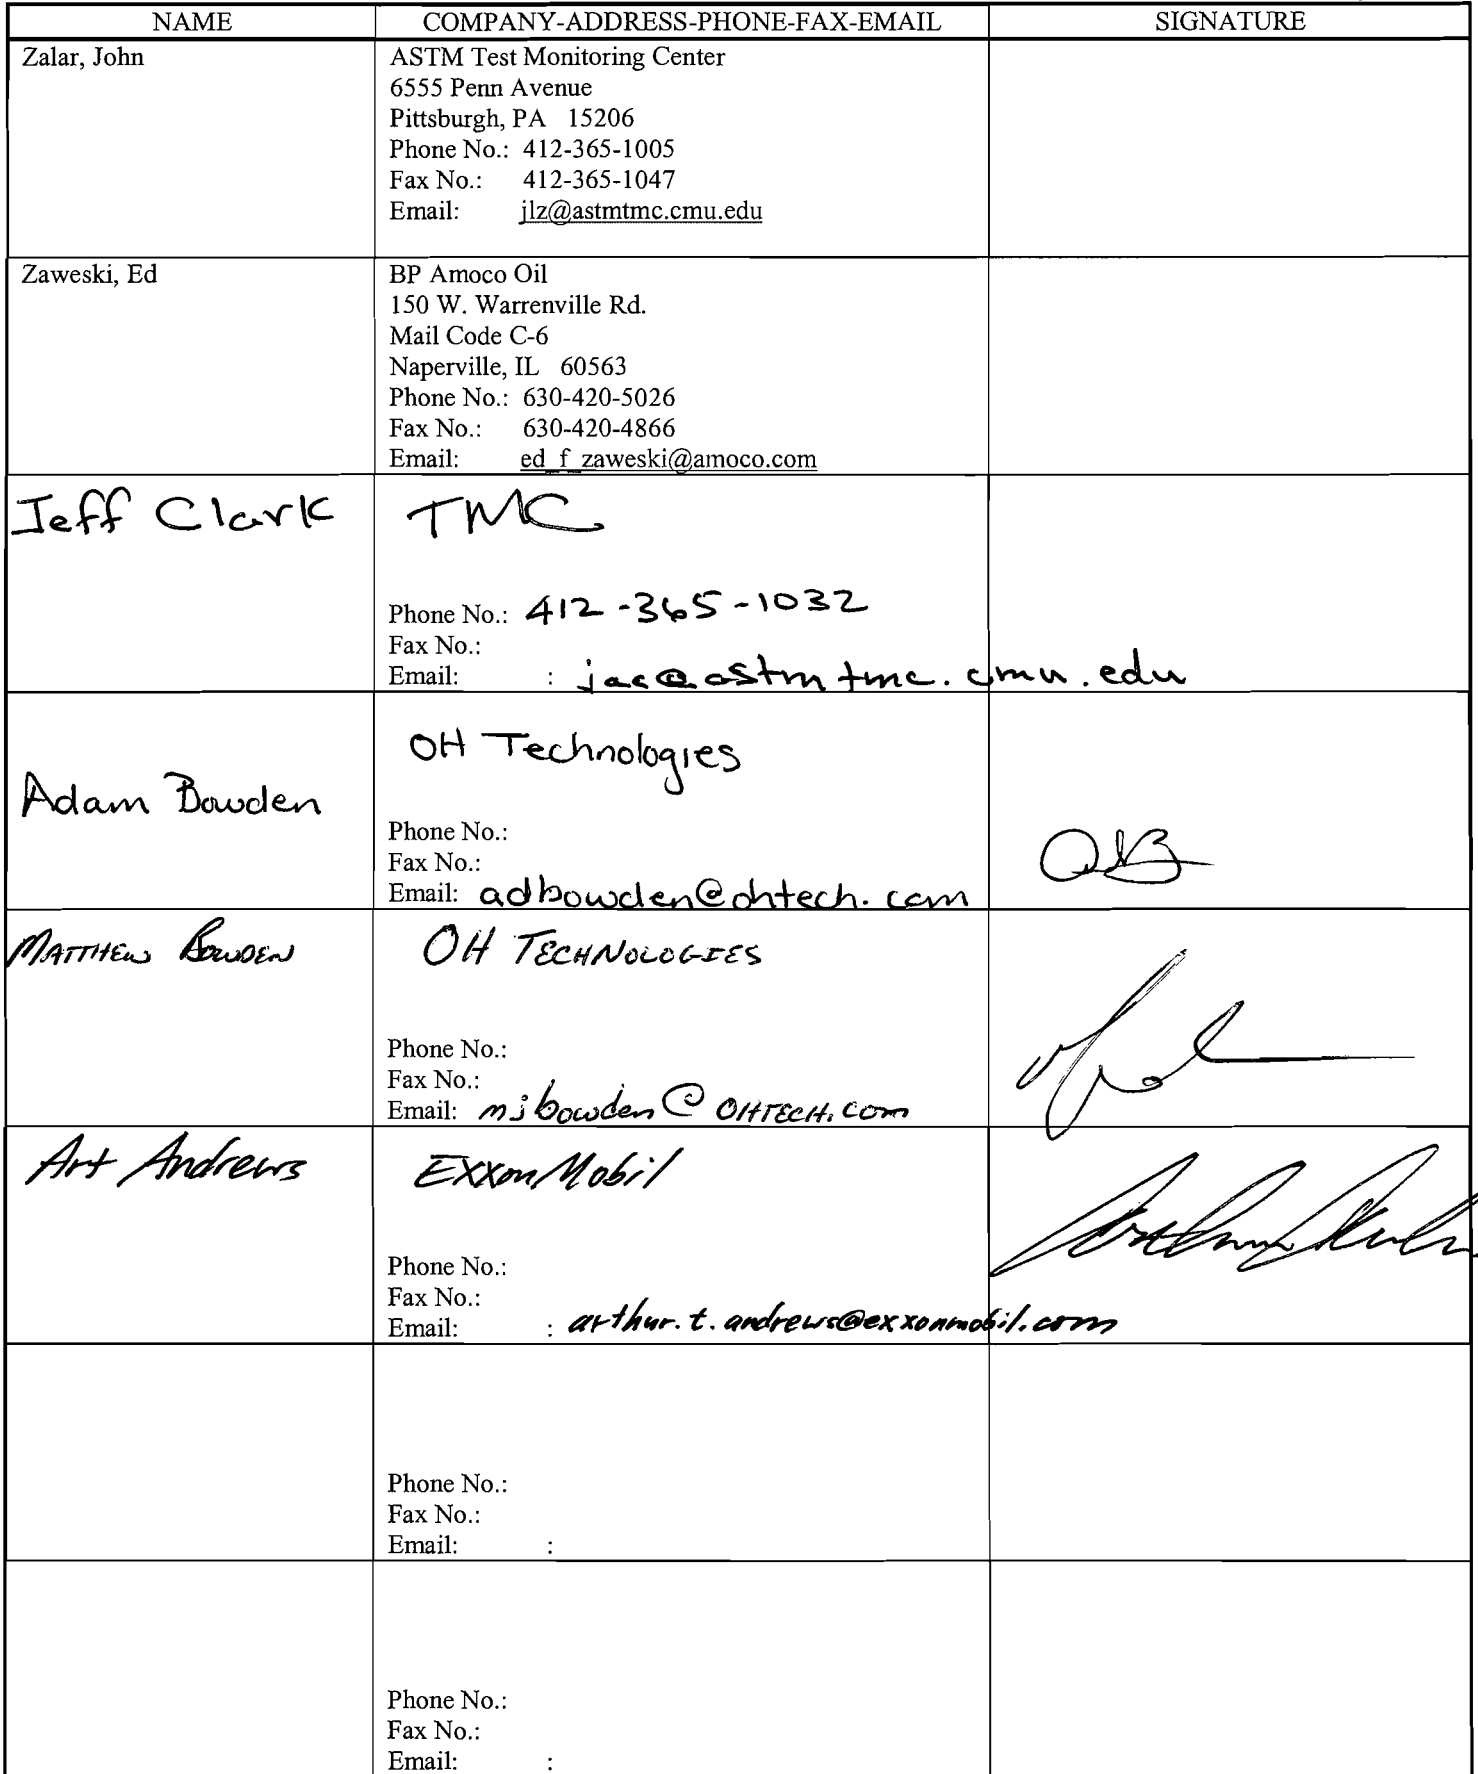 NAME COMPANY-ADDRESS-PHONE-FAX-EMAIL SIGNATURE
Zalar, John ASTM Test Monitoring Center
6555 Penn Avenue
Pittsburgh, PA 15206
Phone No.: 412-365-1005
Fax No.: 412-365-1047
Email: jlz@astmtmc.cmu.edu
Zaweski, Ed BP Amoco Oil
150 W. Warrenville Rd.
Mail Code C-6
Naperville, IL 60563
Phone No.: 630-420-5026
Fax No.: 630-420-4866
Email: ed_f_zaweski@amoco.com
Jeff Clark TMC
Phone No.: 412-365-1032
Fax No.:
Email: : jac@astmtmc.cmu.edu
OH Technologies
Adam Bowden
Phone No.:
Fax No.:
Email: adbowden@ohtech.com
MATTHEW BOWDEN OH TECHNOLOGIES
Phone No.:
Fax No.:
Email: mjbowden@OHTECH.com
Art Andrews ExxonMobil
Phone No.:
Fax No.:
Email: : arthur.t.andrews@exxonmobil.com
Phone No.:
Fax No.:
Email: :
Phone No.:
Fax No.:
Email: :